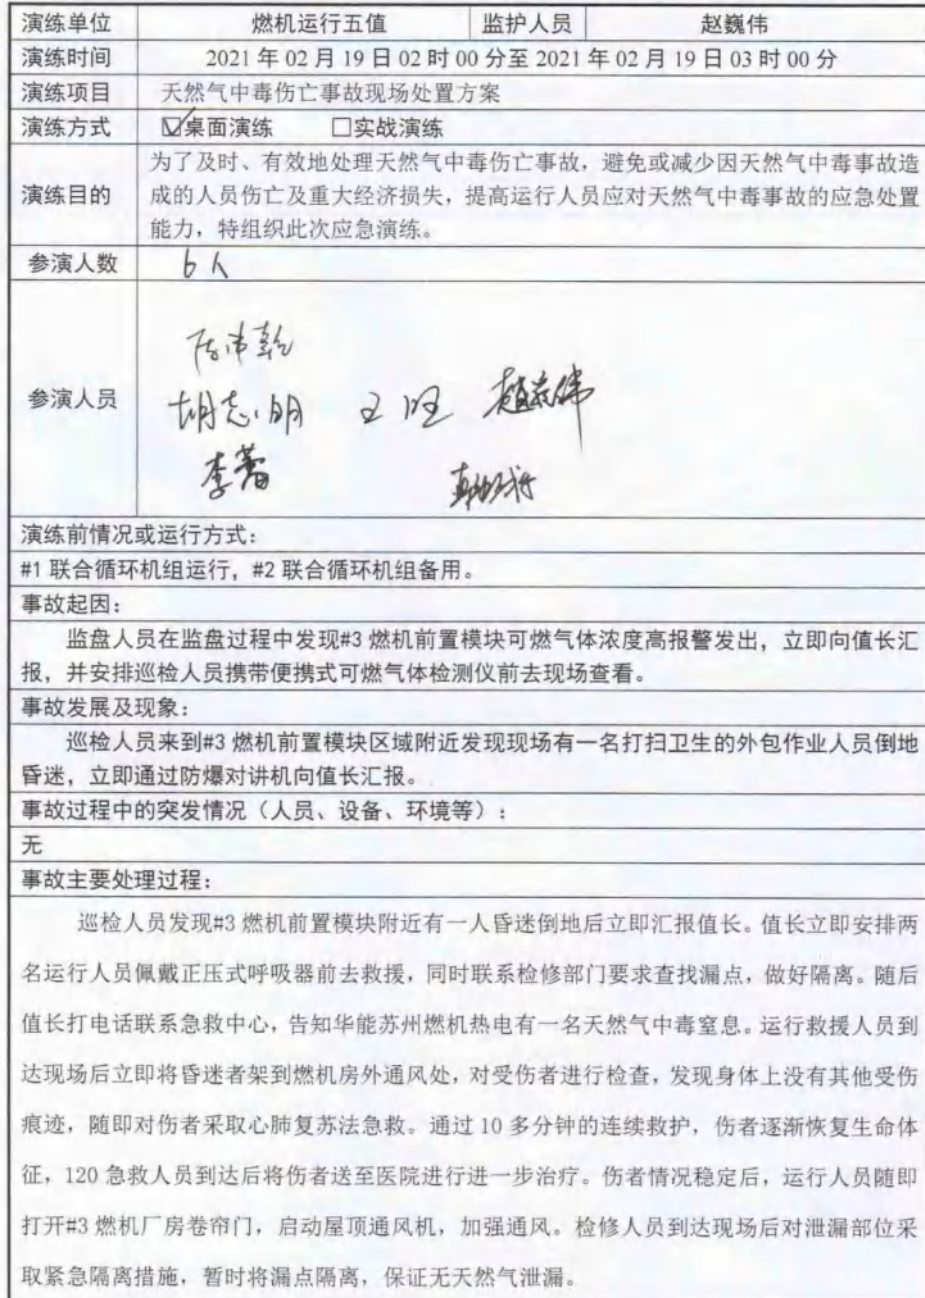 演练单位 燃机运行五值 监护人员 赵巍伟
演练时间 2021 年 02 月 19 日 02 时 00 分至 2021 年 02 月 19 日 03 时 00 分
演练项目 天然气中毒伤亡事故现场处置方案
演练方式 ☑桌面演练 □实战演练
演练目的 为了及时、有效地处理天然气中毒伤亡事故，避免或减少因天然气中毒事故造
成的人员伤亡及重大经济损失，提高运行人员应对天然气中毒事故的应急处置
能力，特组织此次应急演练。
参演人数 6人
参演人员
胡志明 王旺
李蕾
演练前情况或运行方式：
#1 联合循环机组运行，#2 联合循环机组备用。
事故起因：
监盘人员在监盘过程中发现#3 燃机前置模块可燃气体浓度高报警发出，立即向值长汇
报，并安排巡检人员携带便携式可燃气体检测仪前去现场查看。
事故发展及现象：
巡检人员来到#3 燃机前置模块区域附近发现现场有一名打扫卫生的外包作业人员倒地
昏迷，立即通过防爆对讲机向值长汇报。
事故过程中的突发情况（人员、设备、环境等）：
无
事故主要处理过程：
巡检人员发现#3 燃机前置模块附近有一人昏迷倒地后立即汇报值长。值长立即安排两
名运行人员佩戴正压式呼吸器前去救援，同时联系检修部门要求查找漏点，做好隔离。随后
值长打电话联系急救中心，告知华能苏州燃机热电有一名天然气中毒窒息。运行救援人员到
达现场后立即将昏迷者架到燃机房外通风处，对受伤者进行检查，发现身体上没有其他受伤
痕迹，随即对伤者采取心肺复苏法急救。通过 10 多分钟的连续救护，伤者逐渐恢复生命体
征，120 急救人员到达后将伤者送至医院进行进一步治疗。伤者情况稳定后，运行人员随即
打开#3 燃机厂房卷帘门，启动屋顶通风机，加强通风。检修人员到达现场后对泄漏部位采
取紧急隔离措施，暂时将漏点隔离，保证无天然气泄漏。